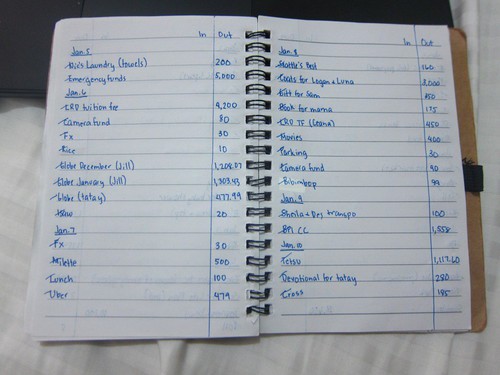 In Out
Jan. 5
Bix's Laundry (towels) 200
Emergency funds 5,000
Jan. 6
TRP tuition fee 4,200
Camera fund 80
Fx 30
Rice 10
Globe December (Jill) 1,208.07
Globe January (Jill) 1,303.43
Globe (tatay) 477.99
20
Jan. 7
Fx 30
Milette 500
Lunch 100
Uber 479
In Out
Jan. 8
Seattle's Best 160
Coats for Logan & Luna
Gift for Sam
Book for mama 175
TRP TF (Ceana) 450
Movies 400
Parking 30
Camera fund 90
Bibimbop 99
Jan. 9
Sheila & Des transpo 100
BPI CC 1,558
Jan. 10
Tetsu 1,117.60
Devotional for tatay 250
Cross 185